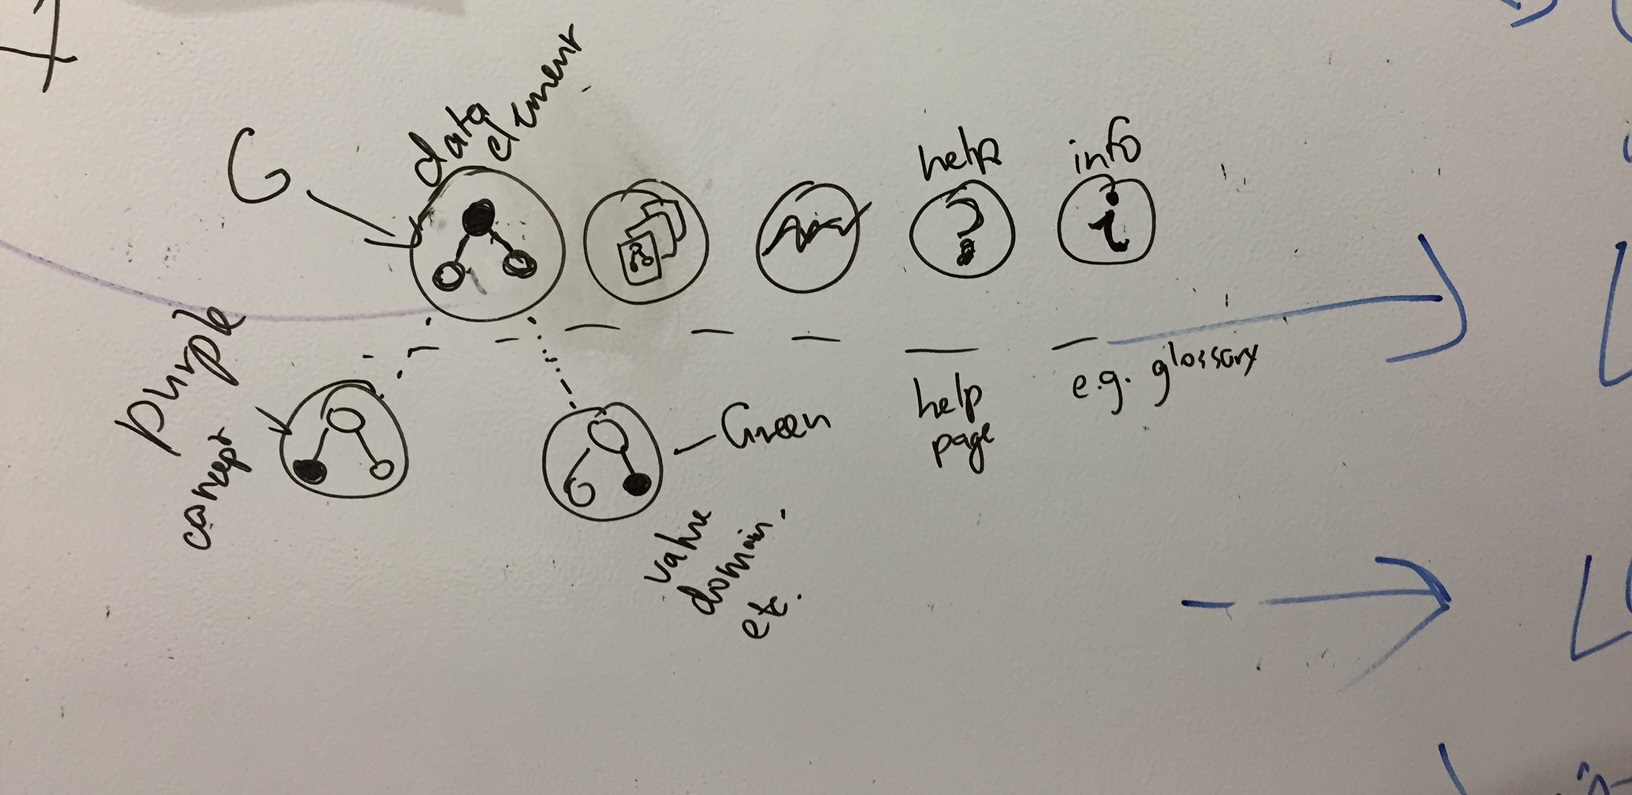 data
element
G
help
?
info
i
purple
concept
Green
value
domain.
etc.
help
page
e.g. glossary